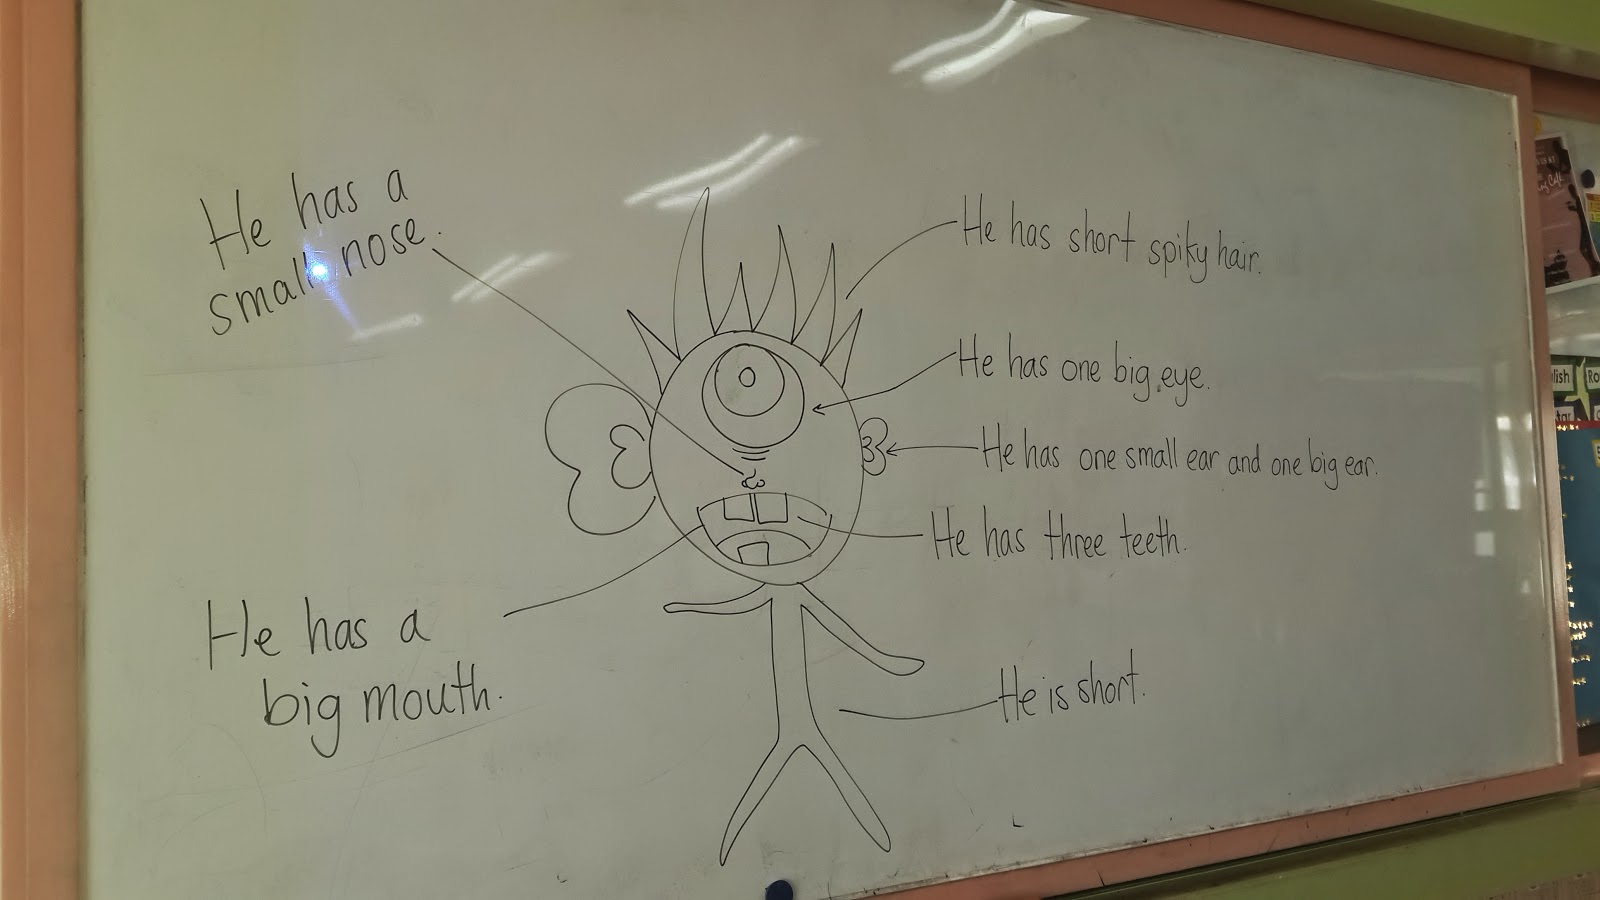 He has a
small nose.
He has short spiky hair.
He has one big eye.
He has one small ear and one big ear.
He has three teeth.
He has a
big mouth.
He is short.